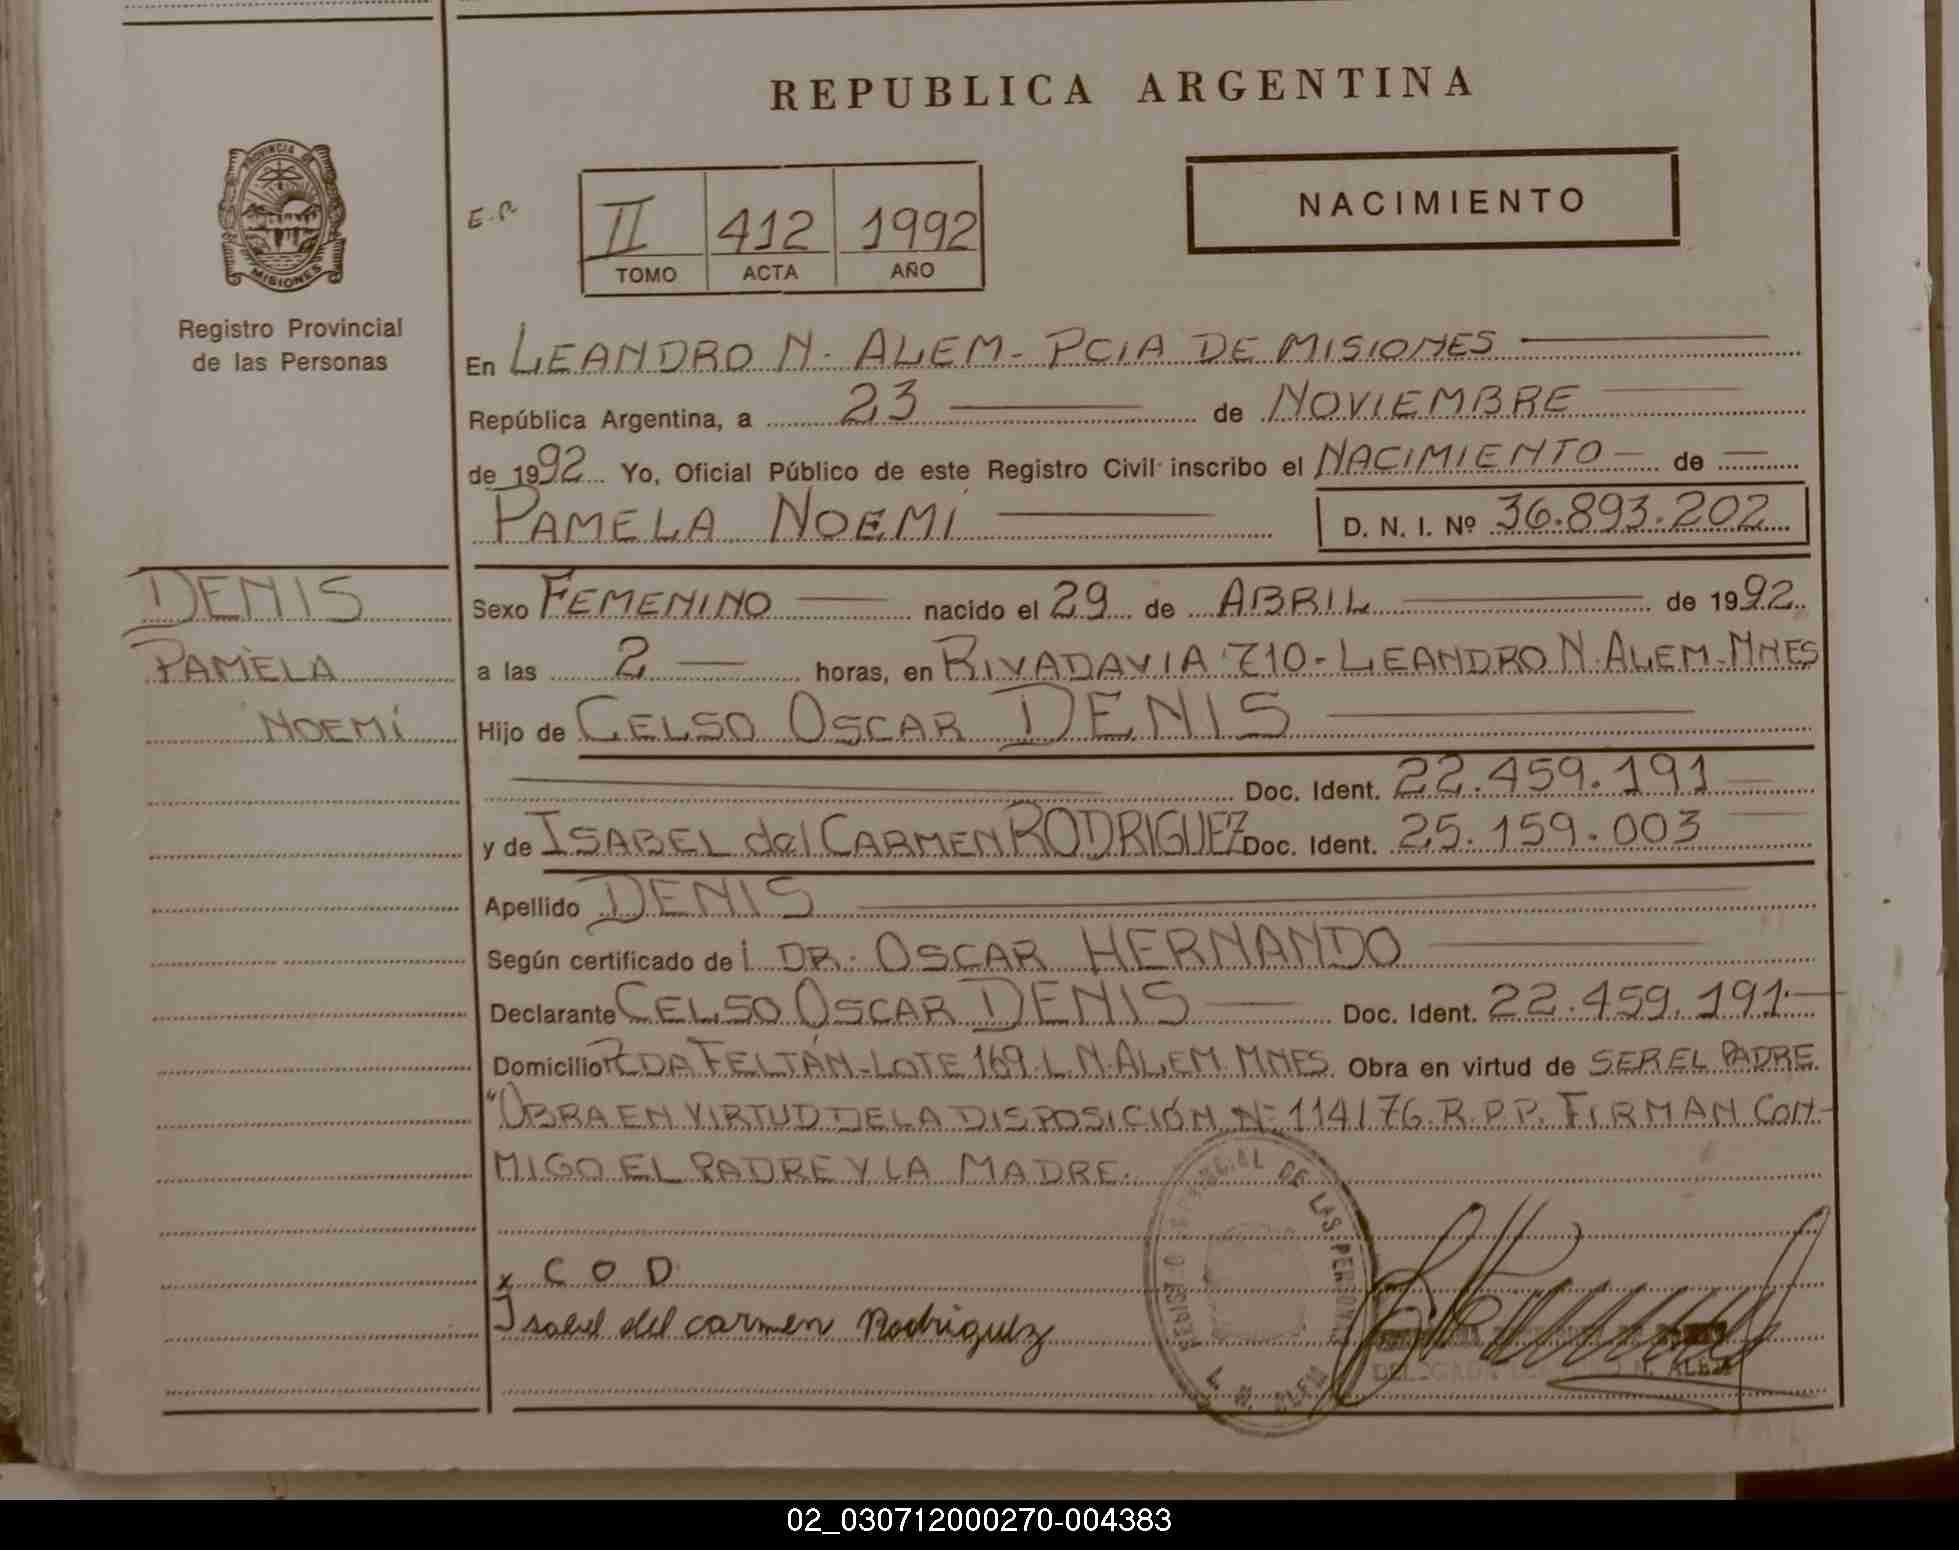 REPUBLICA ARGENTINA
PROVINCIA DE
MISIONES
Registro Provincial
de las Personas
E.R
II 412 1992
TOMO ACTA AÑO
NACIMIENTO
En LEANDRO N. ALEM - PCIA DE MISIONES
República Argentina, a 23 de NOVIEMBRE
de 1992 Yo, Oficial Público de este Registro Civil inscribo el NACIMIENTO de
PAMELA NOEMÍ D. N. I. Nº 36.893.202
DENIS
PAMELA
NOEMÍ
Sexo FEMENINO nacido el 29 de ABRIL de 1992
a las 2 horas, en RIVADAVIA 710 - LEANDRO N. ALEM - MNES
Hijo de CELSO OSCAR DENIS
Doc. Ident. 22.459.191
y de ISABEL del CARMEN RODRIGUEZ Doc. Ident. 25.159.003
Apellido DENIS
Según certificado del DR. OSCAR HERNANDO
Declarante CELSO OSCAR DENIS Doc. Ident. 22.459.191
Domicilio PDA FELTÁN - LOTE 169. L. N. ALEM. MNES. Obra en virtud de SER EL PADRE.
"OBRA EN VIRTUD DE LA DISPOSICIÓN Nº 114/76. R.P.P. FIRMAN CON-
MIGO EL PADRE Y LA MADRE.
x C O D
Isabel del carmen Rodriguez
REGISTRO PROVINCIAL DE LAS PERSONAS
L. N. ALEM
02_030712000270-004383